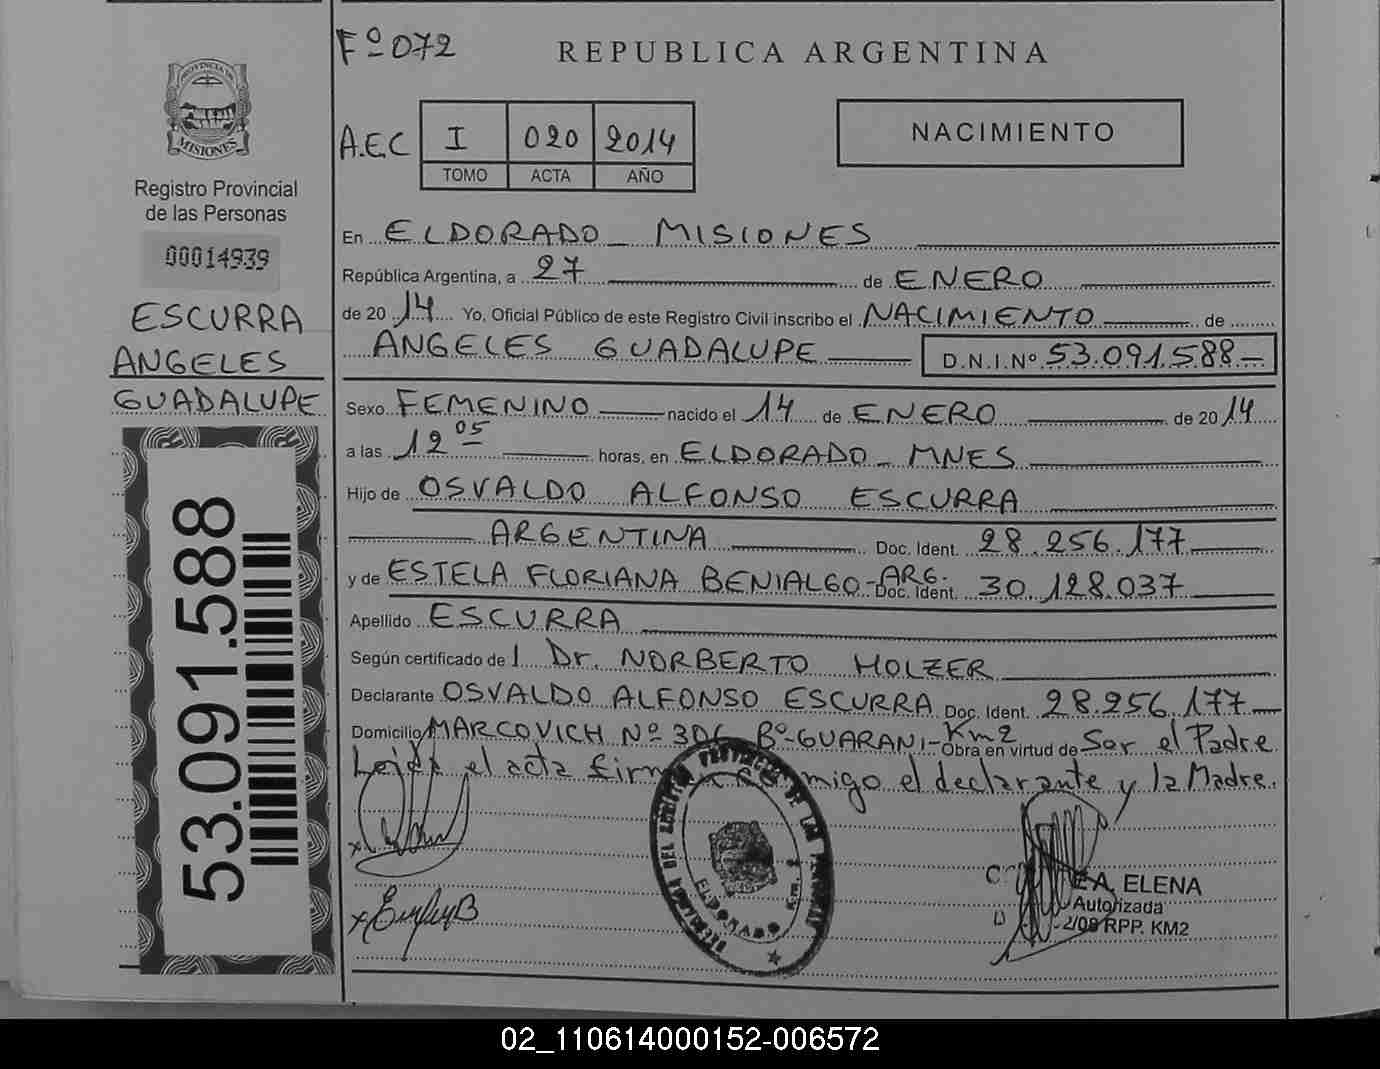 Fº 072
REPUBLICA ARGENTINA
PROVINCIA DE
MISIONES
Registro Provincial
de las Personas
00014939
ESCURRA
ANGELES
GUADALUPE
53.091.588
A.E.C I 020 2014
TOMO ACTA AÑO
NACIMIENTO
En ELDORADO _ MISIONES
República Argentina, a 27 de ENERO
de 20 14 Yo, Oficial Público de este Registro Civil inscribo el NACIMIENTO de
ANGELES GUADALUPE D.N.I.Nº 53.091.588-
Sexo FEMENINO nacido el 14 de ENERO de 20 14
a las 12 05 horas, en ELDORADO _ MNES
Hijo de OSVALDO ALFONSO ESCURRA
ARGENTINA Doc. Ident. 28.256.177
y de ESTELA FLORIANA BENIALGO-ARG. Doc. Ident. 30.128.037
Apellido ESCURRA
Según certificado de Dr. NORBERTO HOLZER
Declarante OSVALDO ALFONSO ESCURRA Doc. Ident. 28.256.177
Domicilio MARCOVICH Nº 306 Bº-GUARANI-Km2 Obra en virtud de Ser el Padre
Leida el acta firm migo el declarante y la Madre.
ELDORADO
Km. 2
A. ELENA
Autorizada
2/08 RPP. KM2
02_110614000152-006572